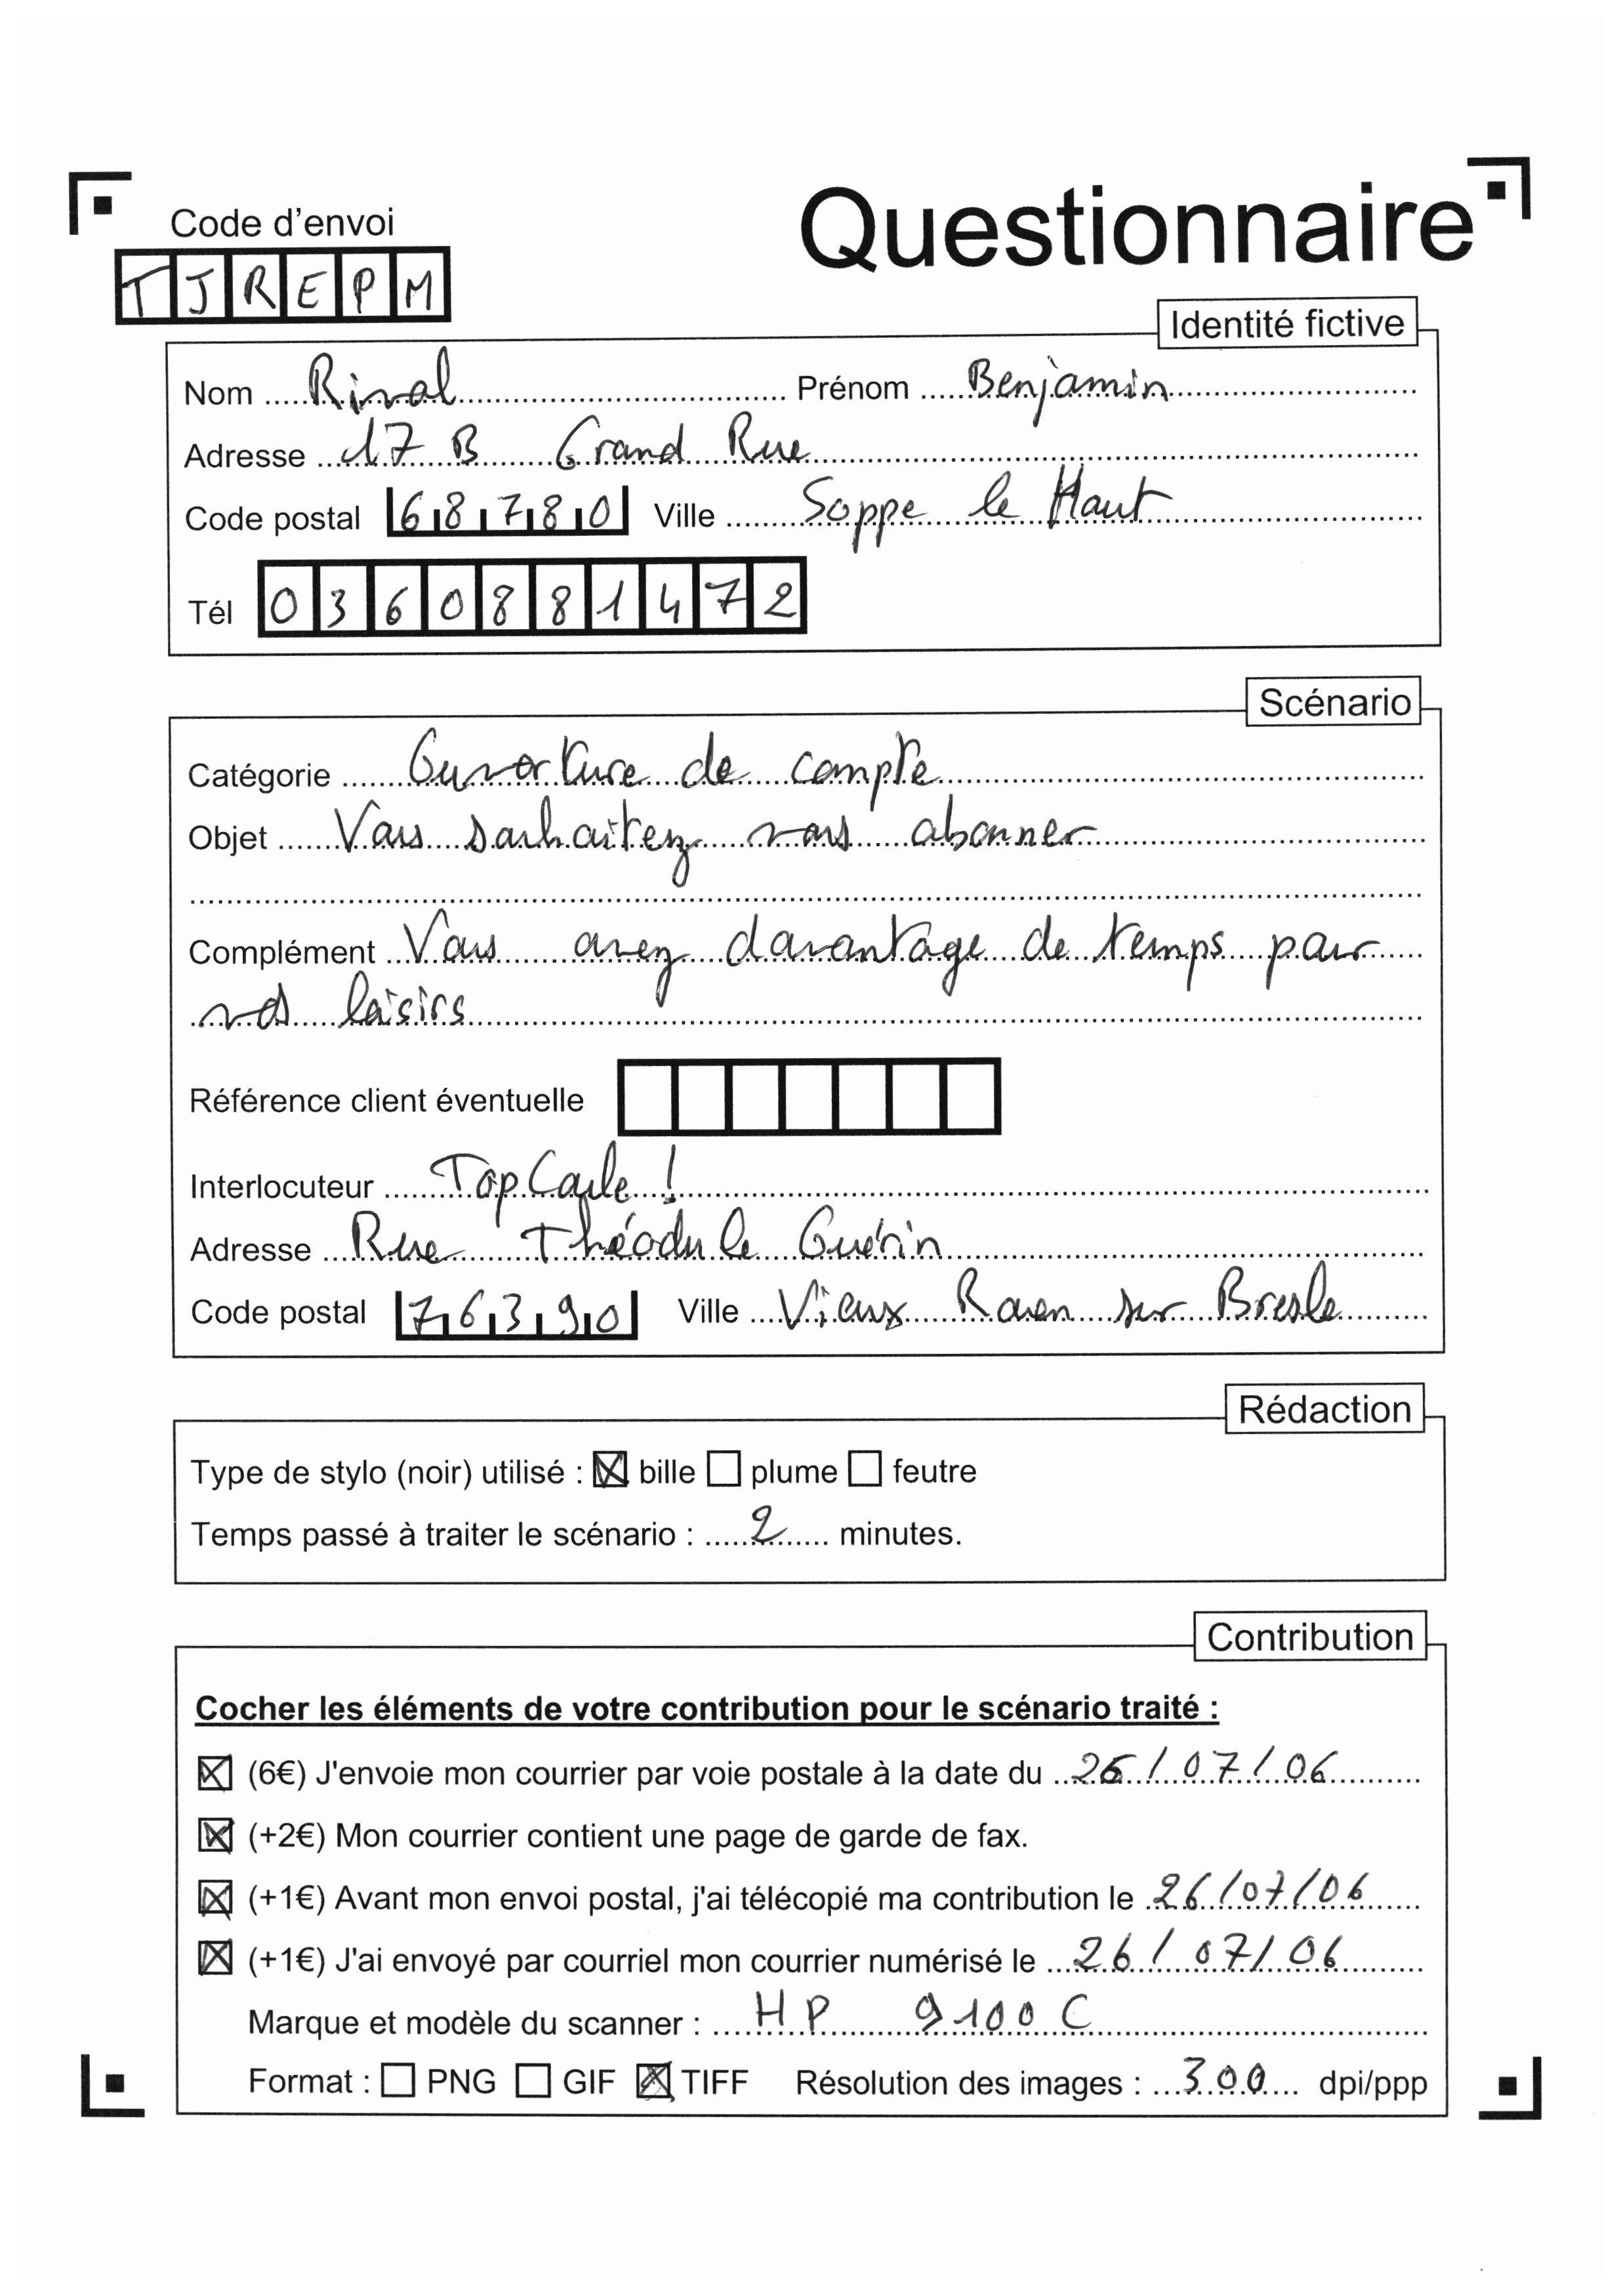 Code d'envoi
Questionnaire
T J R E P M
Identité fictive
Nom Rinal Prénom Benjamin
Adresse 17 B Grand Rue
Code postal 68780 Ville Soppe le Haut
Tél 0360881472
Scénario
Catégorie Ouverture de compte
Objet Vous souhaitez vous abonner
Complément Vous avez davantage de temps pour
vos loisirs
Référence client éventuelle
Interlocuteur TopCoule !
Adresse Rue Théodule Guérin
Code postal 76390 Ville Vieux Rouen sur Bresle
Rédaction
Type de stylo (noir) utilisé : ☒ bille ☐ plume ☐ feutre
Temps passé à traiter le scénario : 2 minutes.
Contribution
Cocher les éléments de votre contribution pour le scénario traité :
☒ (6€) J'envoie mon courrier par voie postale à la date du 26/07/06
☒ (+2€) Mon courrier contient une page de garde de fax.
☒ (+1€) Avant mon envoi postal, j'ai télécopié ma contribution le 26/07/06
☒ (+1€) J'ai envoyé par courriel mon courrier numérisé le 26/07/06
Marque et modèle du scanner : HP 9100C
Format : ☐ PNG ☐ GIF ☒ TIFF Résolution des images : 300 dpi/ppp